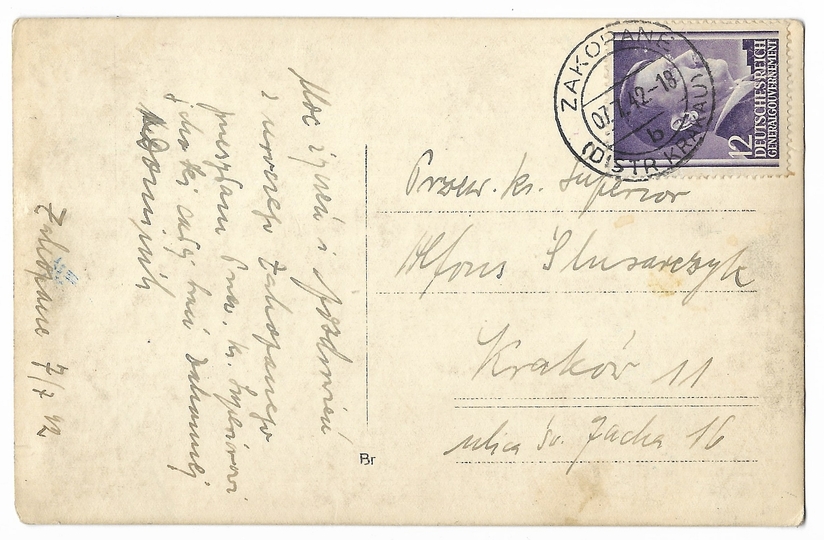 Moc życzeń i pozdrowień
z uroczego Zakopanego
przesyłam Przew. ks. Superiorowi
i całej braci zakonnej
Zakopane 7/7 42
ZAKOPANE
07.7.42-18
b
(DISTR. KRAKAU)
12
DEUTSCHES REICH
GENERALGOUVERNEMENT
Przew. ks. Superior
Alfons Ślusarczyk
Kraków 11
ulica św. Jacka 16
Br